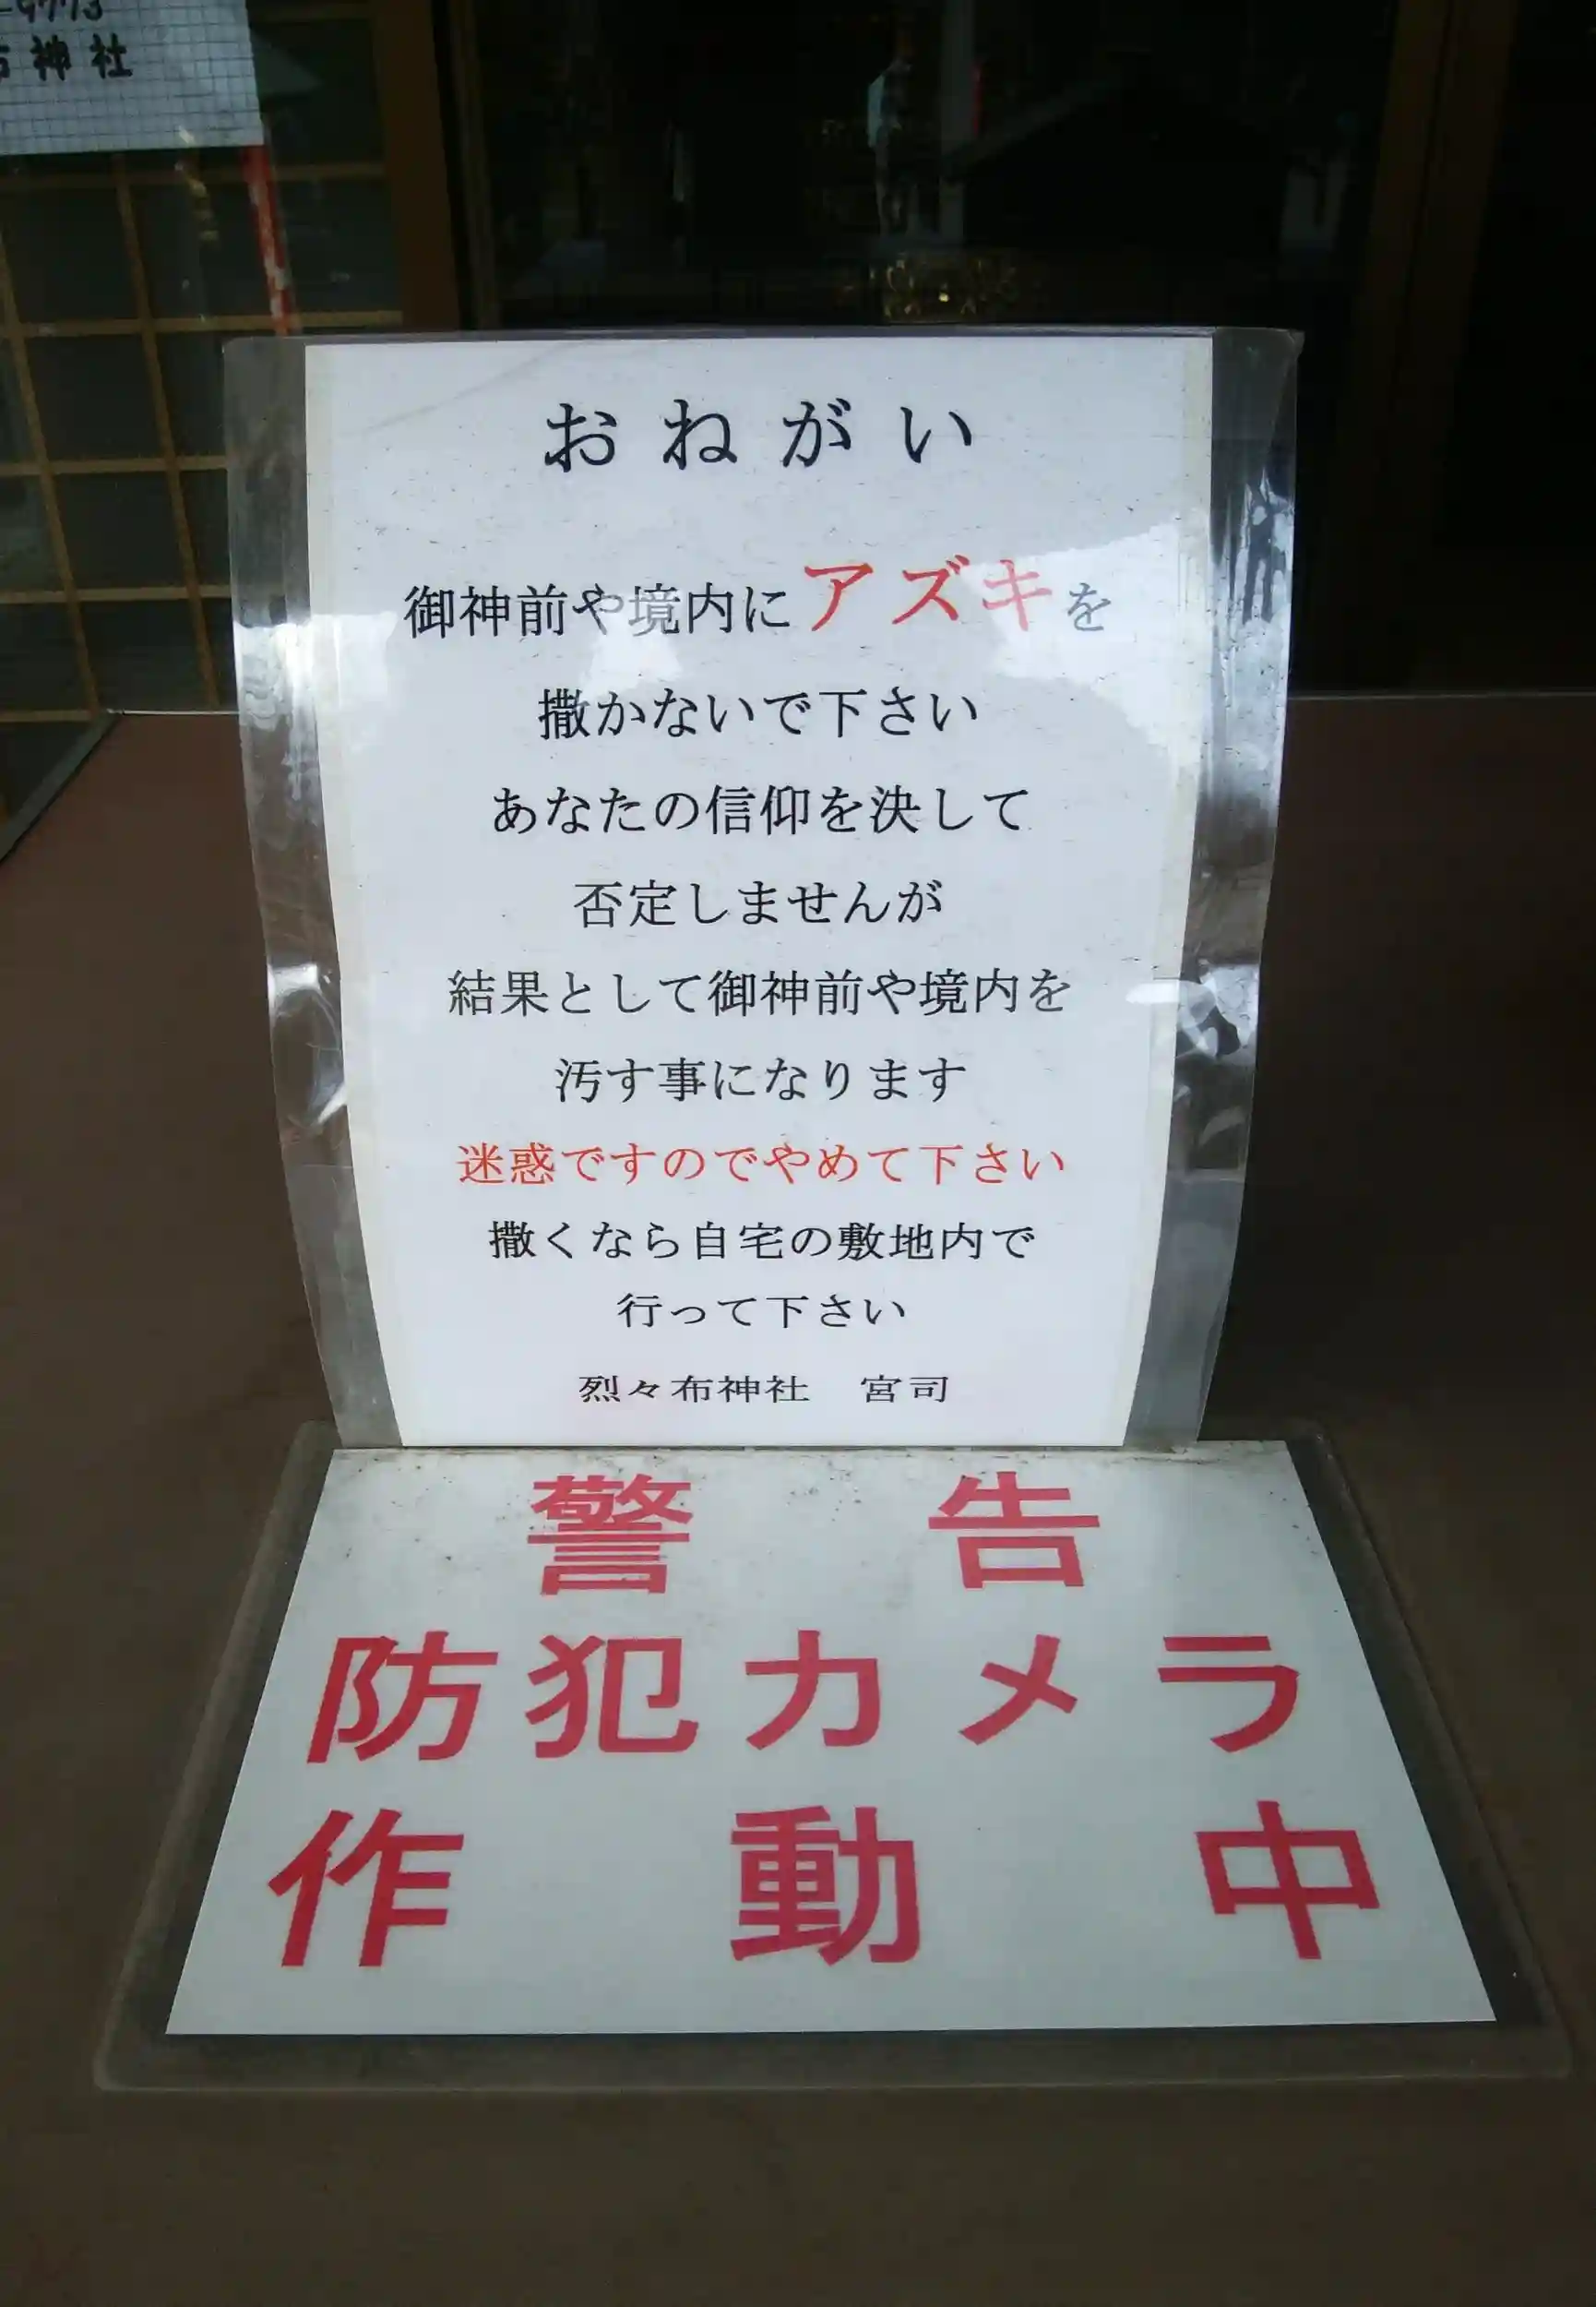 -9773
神社
おねがい
御神前や境内にアズキを
撒かないで下さい
あなたの信仰を決して
否定しませんが
結果として御神前や境内を
汚す事になります
迷惑ですのでやめて下さい
撒くなら自宅の敷地内で
行って下さい
烈々布神社　宮司
警告
防犯カメラ
作動中